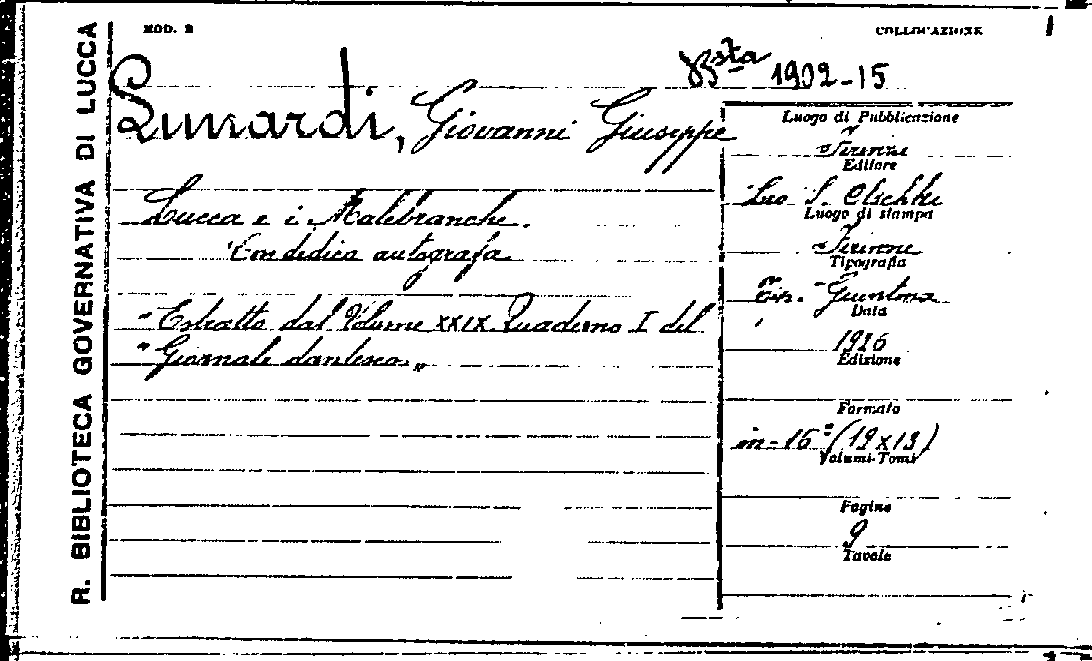 R. BIBLIOTECA GOVERNATIVA DI LUCCA
MOD. 2
COLLOCAZIONE
Bsta 1902-15
Lunardi, Giovanni Giuseppe
Lucca e i Malebranche.
Con dedica autografa
- Estratto dal Volume XXIX Quaderno I del
"Giornale dantesco„
Luogo di Pubblicazione
Firenze
Editore
Leo S. Olschki
Luogo di stampa
Firenze
Tipografia
Tip. Giuntina
Data
1926
Edizione
Formato
in-16º (19x13)
Volumi-Tomi
Pagine
9
Tavole